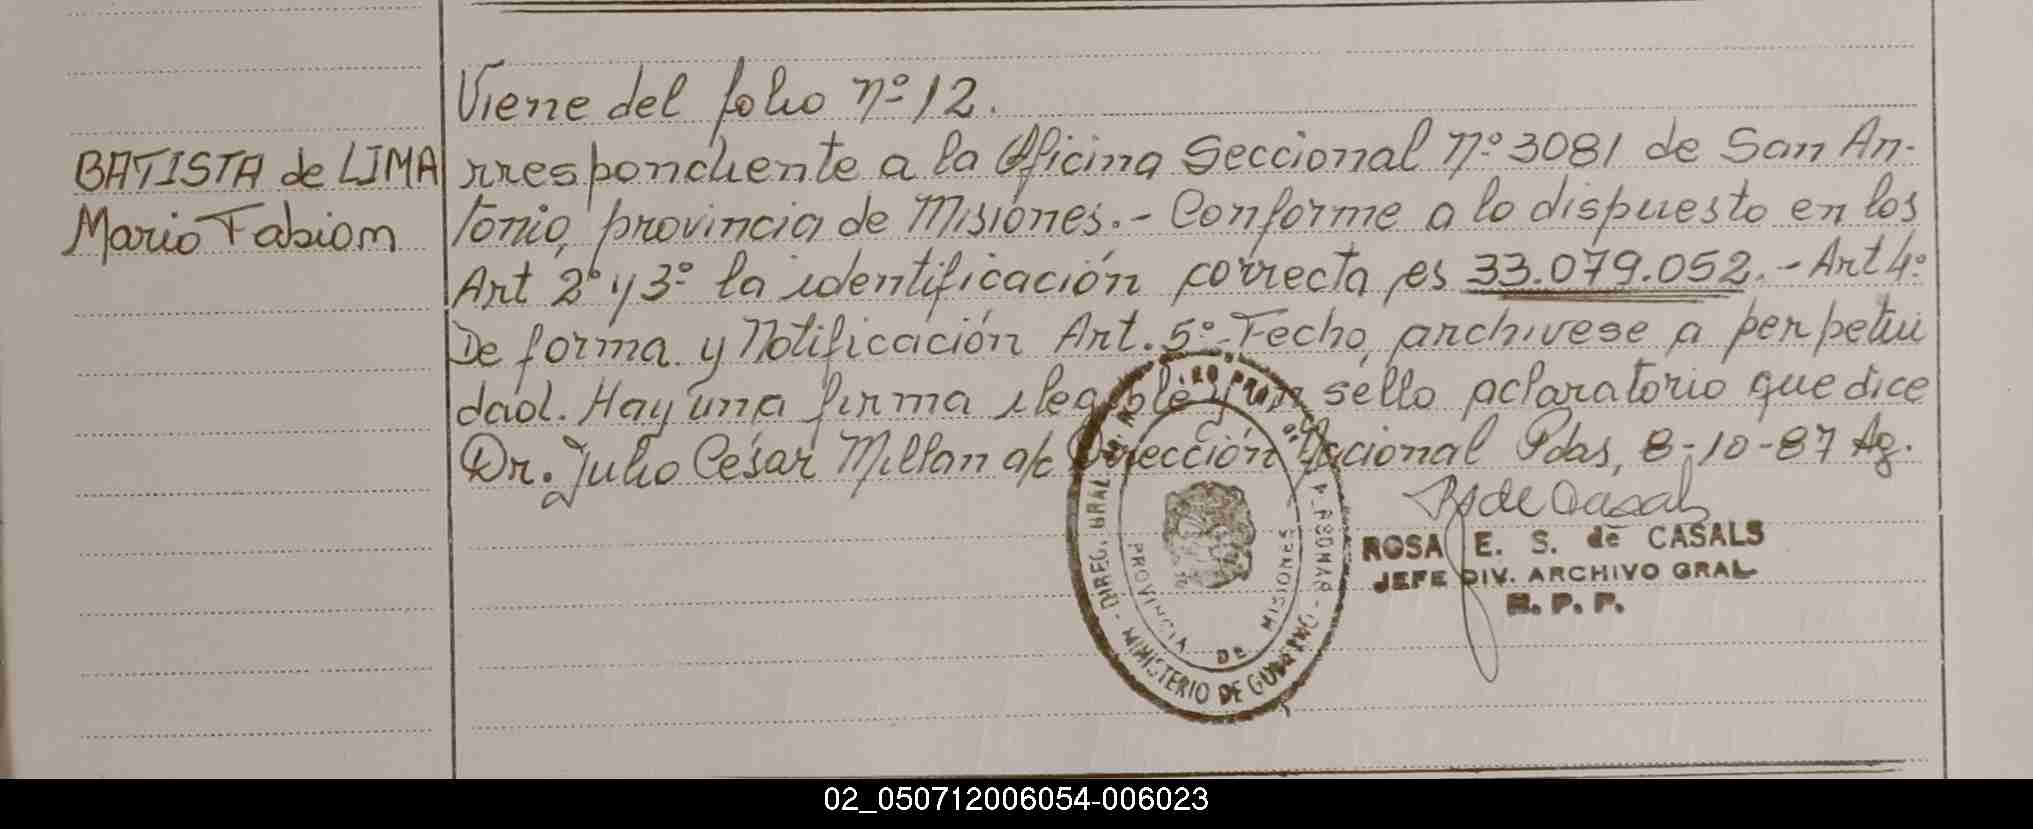 Viene del folio nº 12.
BATISTA de LIMA
Mario Fabiom
rrespondiente a la Oficina Seccional nº 3081 de San An-
tonio, provincia de Misiones.- Conforme a lo dispuesto en los
Art 2º y 3º la identificación correcta es 33.079.052.- Art 4º
De forma y Notificación Art. 5º- Fecho, archivese a perpetui
dad. Hay una firma ilegible y un sello aclaratorio que dice
Dr. Julio César Millan a/c Dirección Nacional Pdas, 8-10-87 Ag.
R S de Casals
ROSA E. S. de CASALS
JEFE DIV. ARCHIVO GRAL
R. P. P.
DIREC. GRAL.
MINISTERIO DE GOBIERNO
PROVINCIA DE MISIONES
02_050712006054-006023